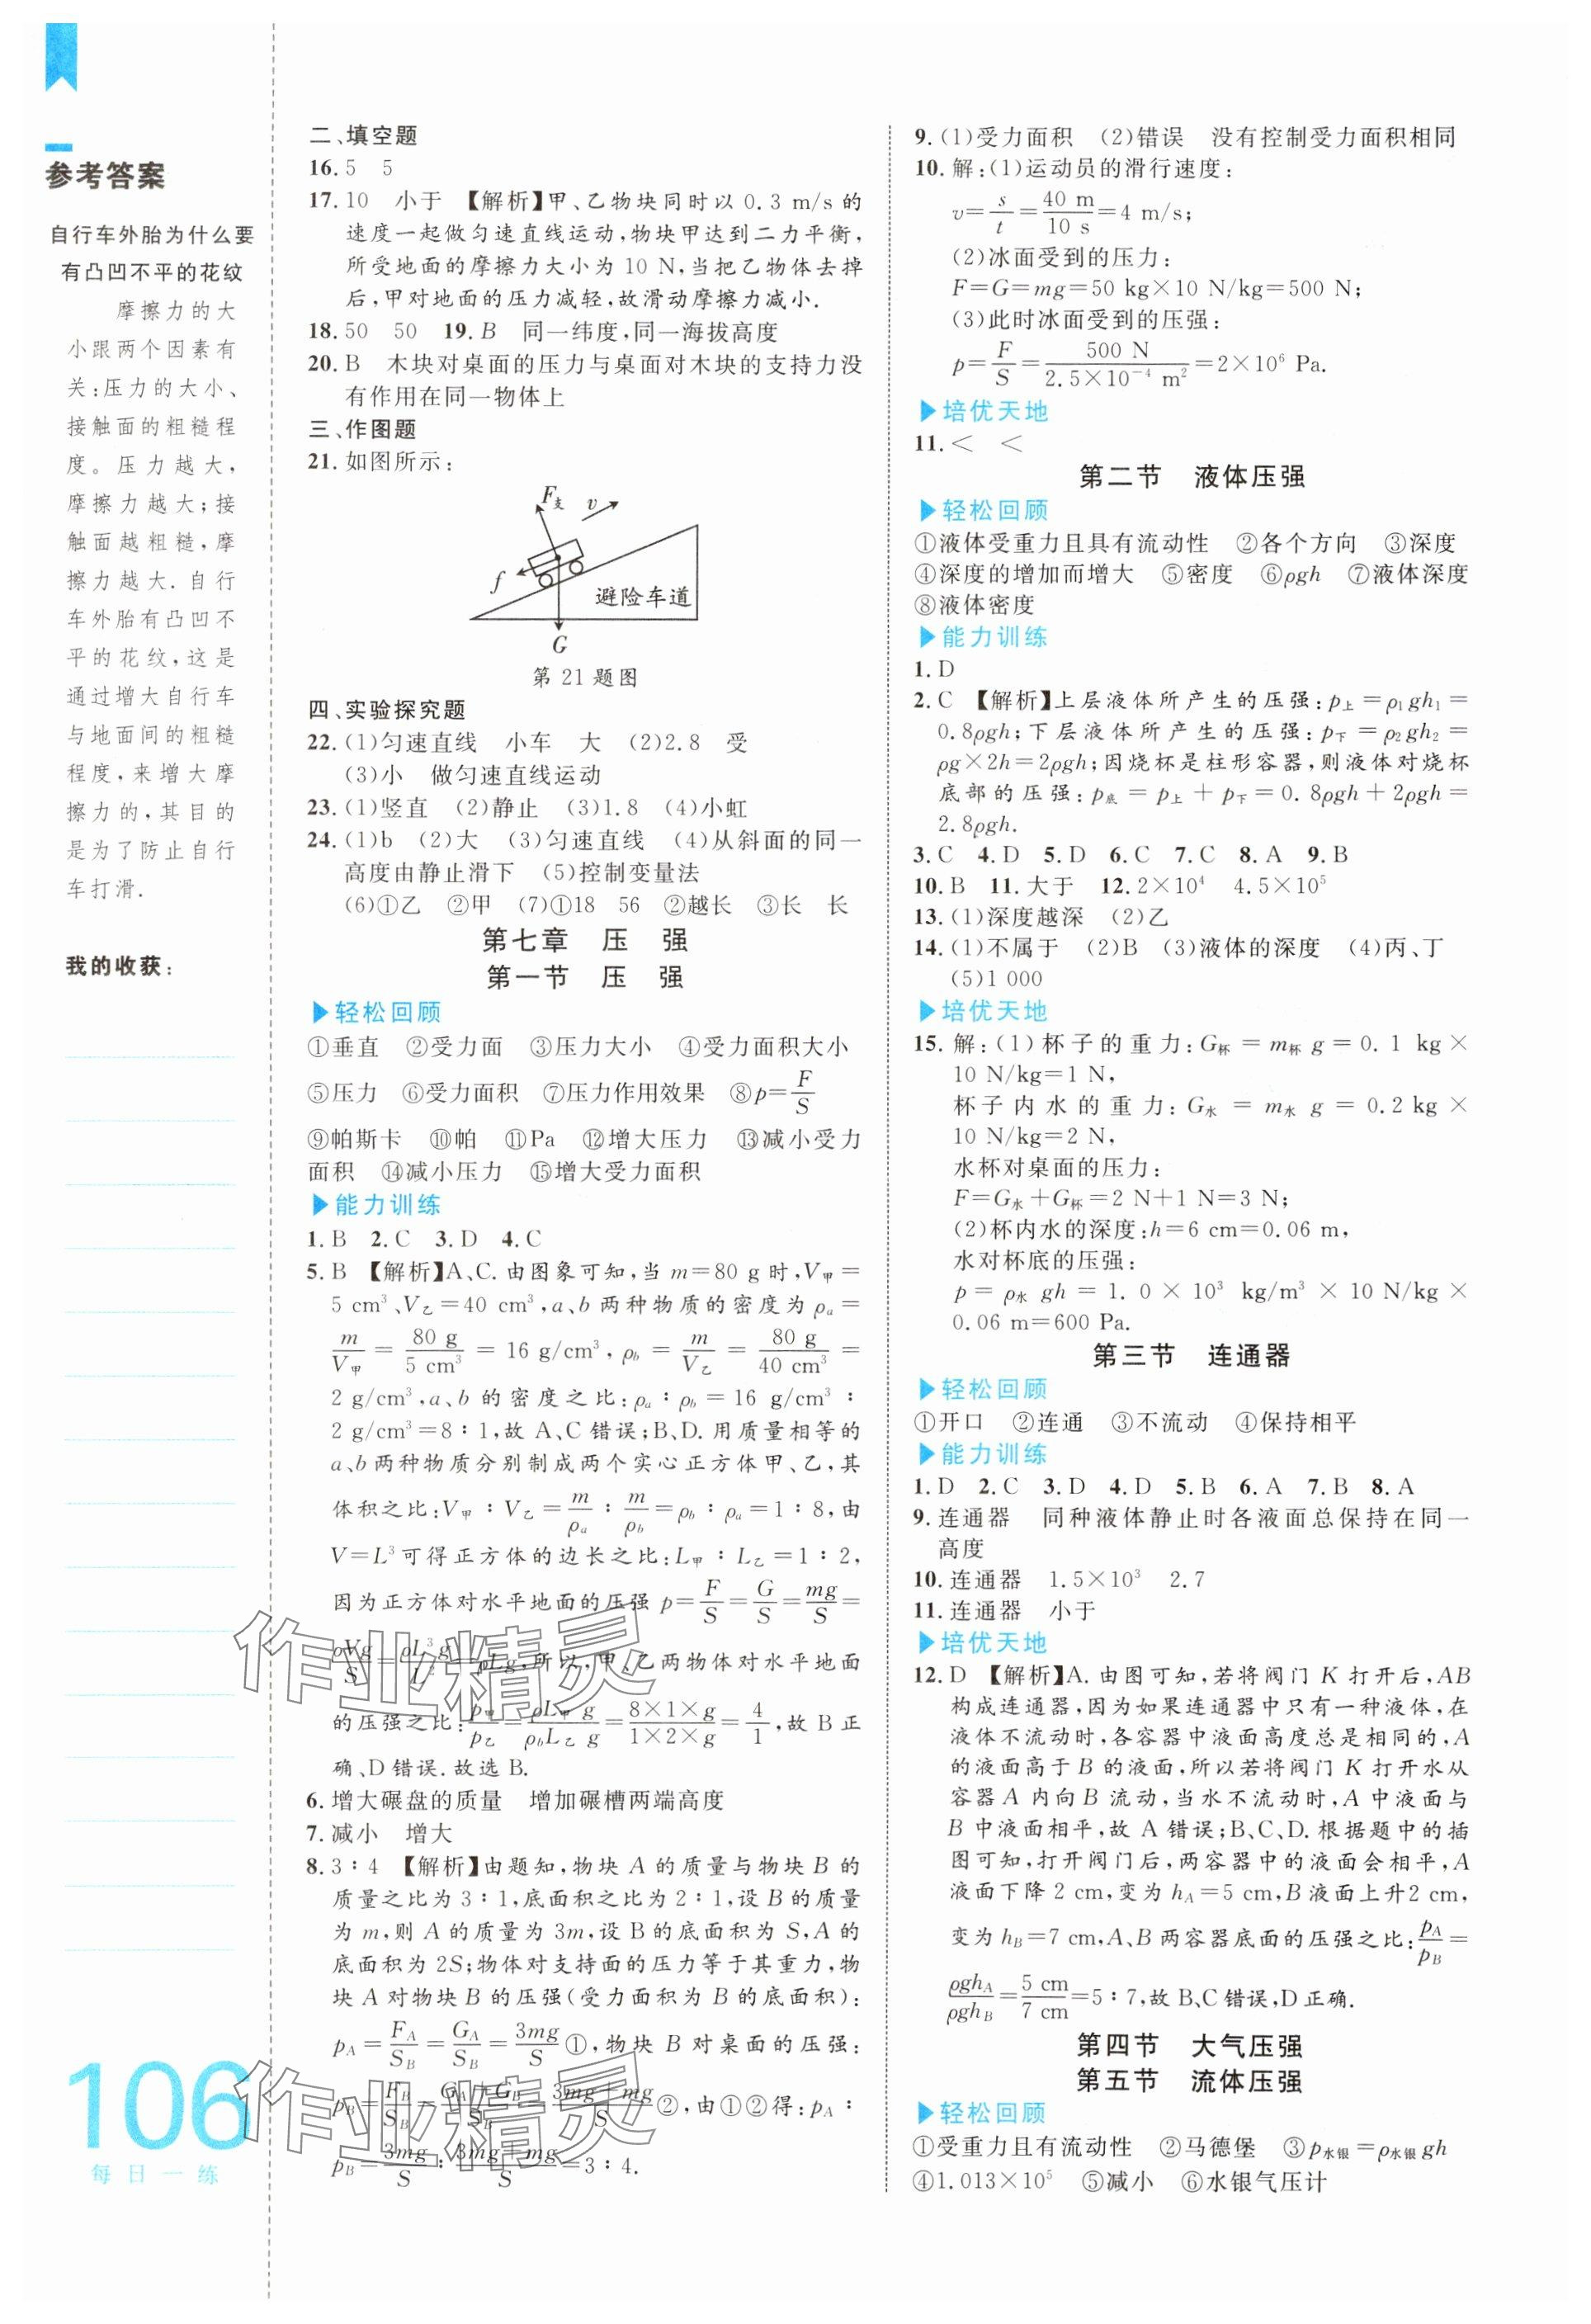 参考答案
自行车外胎为什么要
有凸凹不平的花纹
摩擦力的大
小跟两个因素有
关:压力的大小、
接触面的粗糙程
度。压力越大,
摩擦力越大;接
触面越粗糙,摩
擦力越大.自行
车外胎有凸凹不
平的花纹,这是
通过增大自行车
与地面间的粗糙
程度,来增大摩
擦力的,其目的
是为了防止自行
车打滑.
我的收获:
106
每日一练
二、填空题
16. 5 5
17. 10 小于 【解析】甲、乙物块同时以 0.3 m/s 的
速度一起做匀速直线运动,物块甲达到二力平衡,
所受地面的摩擦力大小为 10 N,当把乙物体去掉
后,甲对地面的压力减轻,故滑动摩擦力减小.
18. 50 50 19. B 同一纬度,同一海拔高度
20. B 木块对桌面的压力与桌面对木块的支持力没
有作用在同一物体上
三、作图题
21. 如图所示:
F支 v
f
避险车道
G
第 21 题图
四、实验探究题
22. (1)匀速直线 小车 大 (2)2.8 受
(3)小 做匀速直线运动
23. (1)竖直 (2)静止 (3)1.8 (4)小虹
24. (1)b (2)大 (3)匀速直线 (4)从斜面的同一
高度由静止滑下 (5)控制变量法
(6)①乙 ②甲 (7)①18 56 ②越长 ③长 长
第七章 压 强
第一节 压 强
▶轻松回顾
①垂直 ②受力面 ③压力大小 ④受力面积大小
⑤压力 ⑥受力面积 ⑦压力作用效果 ⑧p=F/S
⑨帕斯卡 ⑩帕 ⑪Pa ⑫增大压力 ⑬减小受力
面积 ⑭减小压力 ⑮增大受力面积
▶能力训练
1. B 2. C 3. D 4. C
5. B 【解析】A、C. 由图象可知,当 m=80 g 时,V甲=
5 cm³、V乙=40 cm³,a、b 两种物质的密度为 ρa=
m/V甲=80 g/5 cm³=16 g/cm³,ρb=m/V乙=80 g/40 cm³=
2 g/cm³,a、b 的密度之比:ρa∶ρb=16 g/cm³∶
2 g/cm³=8∶1,故 A、C 错误;B、D. 用质量相等的
a、b 两种物质分别制成两个实心正方体甲、乙,其
体积之比:V甲∶V乙=m/ρa∶m/ρb=ρb∶ρa=1∶8,由
V=L³可得正方体的边长之比:L甲∶L乙=1∶2,
因为正方体对水平地面的压强 p=F/S=G/S=mg/S=
ρVg/S=ρL³g/L²=ρLg,所以,甲、乙两物体对水平地面
的压强之比:p甲/p乙=ρaL甲g/ρbL乙g=8×1×g/1×2×g=4/1,故 B 正
确、D 错误.故选 B.
6. 增大碾盘的质量 增加碾槽两端高度
7. 减小 增大
8. 3∶4 【解析】由题知,物块 A 的质量与物块 B 的
质量之比为 3∶1,底面积之比为 2∶1,设 B 的质量
为 m,则 A 的质量为 3m,设 B 的底面积为 S,A 的
底面积为 2S;物体对支持面的压力等于其重力,物
块 A 对物块 B 的压强(受力面积为 B 的底面积):
pA=FA/SB=GA/SB=3mg/S①,物块 B 对桌面的压强:
pB=FB/SB=GA+GB/SB=3mg+mg/S②,由①②得:pA∶
pB=3mg/S∶3mg+mg/S=3∶4.
9. (1)受力面积 (2)错误 没有控制受力面积相同
10. 解:(1)运动员的滑行速度:
v=s/t=40 m/10 s=4 m/s;
(2)冰面受到的压力:
F=G=mg=50 kg×10 N/kg=500 N;
(3)此时冰面受到的压强:
p=F/S=500 N/2.5×10⁻⁴ m²=2×10⁶ Pa.
▶培优天地
11. < <
第二节 液体压强
▶轻松回顾
①液体受重力且具有流动性 ②各个方向 ③深度
④深度的增加而增大 ⑤密度 ⑥ρgh ⑦液体深度
⑧液体密度
▶能力训练
1. D
2. C 【解析】上层液体所产生的压强:p上=ρ1gh1=
0.8ρgh;下层液体所产生的压强:p下=ρ2gh2=
ρg×2h=2ρgh;因烧杯是柱形容器,则液体对烧杯
底部的压强:p底=p上+p下=0.8ρgh+2ρgh=
2.8ρgh.
3. C 4. D 5. D 6. C 7. C 8. A 9. B
10. B 11. 大于 12. 2×10⁴ 4.5×10⁵
13. (1)深度越深 (2)乙
14. (1)不属于 (2)B (3)液体的深度 (4)丙、丁
(5)1 000
▶培优天地
15. 解:(1)杯子的重力:G杯=m杯g=0.1 kg×
10 N/kg=1 N,
杯子内水的重力:G水=m水g=0.2 kg×
10 N/kg=2 N,
水杯对桌面的压力:
F=G水+G杯=2 N+1 N=3 N;
(2)杯内水的深度:h=6 cm=0.06 m,
水对杯底的压强:
p=ρ水gh=1.0×10³ kg/m³×10 N/kg×
0.06 m=600 Pa.
第三节 连通器
▶轻松回顾
①开口 ②连通 ③不流动 ④保持相平
▶能力训练
1. D 2. C 3. D 4. D 5. B 6. A 7. B 8. A
9. 连通器 同种液体静止时各液面总保持在同一
高度
10. 连通器 1.5×10³ 2.7
11. 连通器 小于
▶培优天地
12. D 【解析】A. 由图可知,若将阀门 K 打开后,AB
构成连通器,因为如果连通器中只有一种液体,在
液体不流动时,各容器中液面高度总是相同的,A
的液面高于 B 的液面,所以若将阀门 K 打开水从
容器 A 内向 B 流动,当水不流动时,A 中液面与
B 中液面相平,故 A 错误;B、C、D. 根据题中的插
图可知,打开阀门后,两容器中的液面会相平,A
液面下降 2 cm,变为 hA=5 cm,B 液面上升2 cm,
变为 hB=7 cm,A、B 两容器底面的压强之比:pA/pB=
ρghA/ρghB=5 cm/7 cm=5∶7,故 B、C 错误,D 正确.
第四节 大气压强
第五节 流体压强
▶轻松回顾
①受重力且有流动性 ②马德堡 ③p水银=ρ水银gh
④1.013×10⁵ ⑤减小 ⑥水银气压计
作业精灵
作业精灵